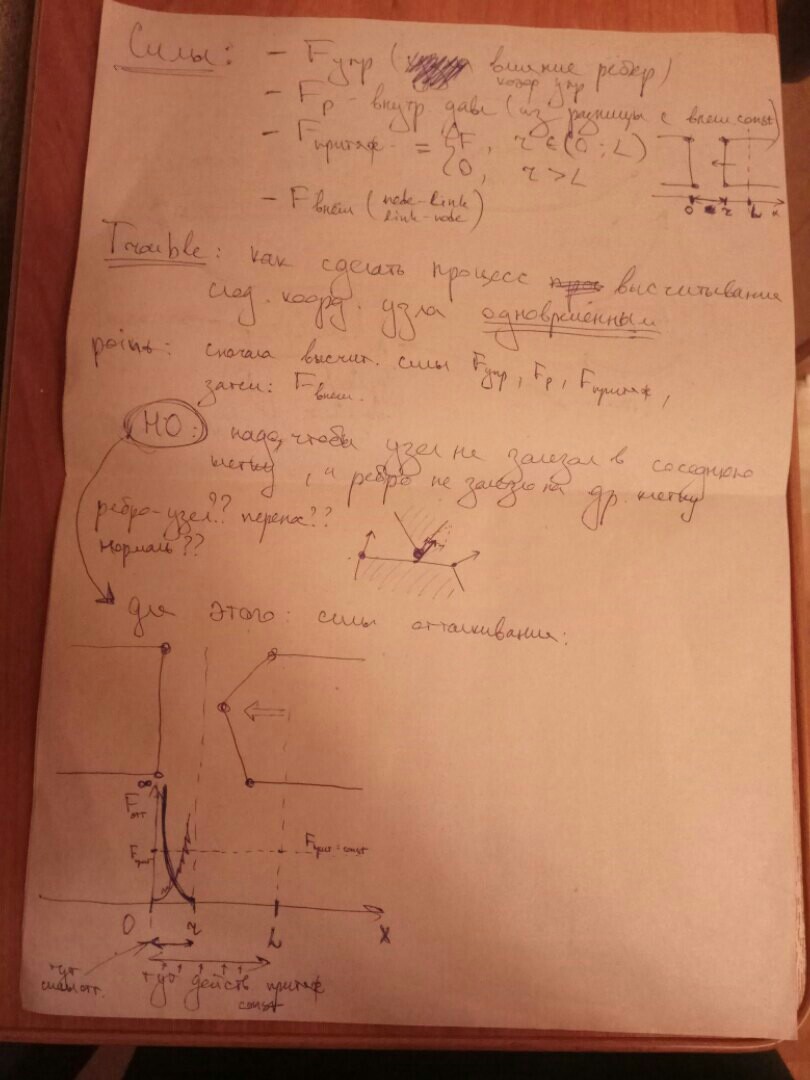 Силы: - Fупр ( влияние рёбер)
коэф упр
- Fр - внутр. давл (из разницы с внеш. const)
- Fпритяж. = {F, r ∈ (0; L)
0, r > L
0 r L x
- Fвнеш (node-link
link-node)
Trouble: как сделать процесс высчитывания
след. коорд. узла одновременным
point: сначала высчит. силы Fупр, Fр, Fпритяж,
затем: Fвнеш.
НО: надо, чтобы узел не залезал в соседнюю
клетку, и ребро не залезло на др. клетку
ребро-узел?? перенос??
нормаль??
для этого: силы отталкивания:
∞
Fотт
Fприт
Fприт = const
0 r L x
тут
силы отт.
тут действ притяж
const